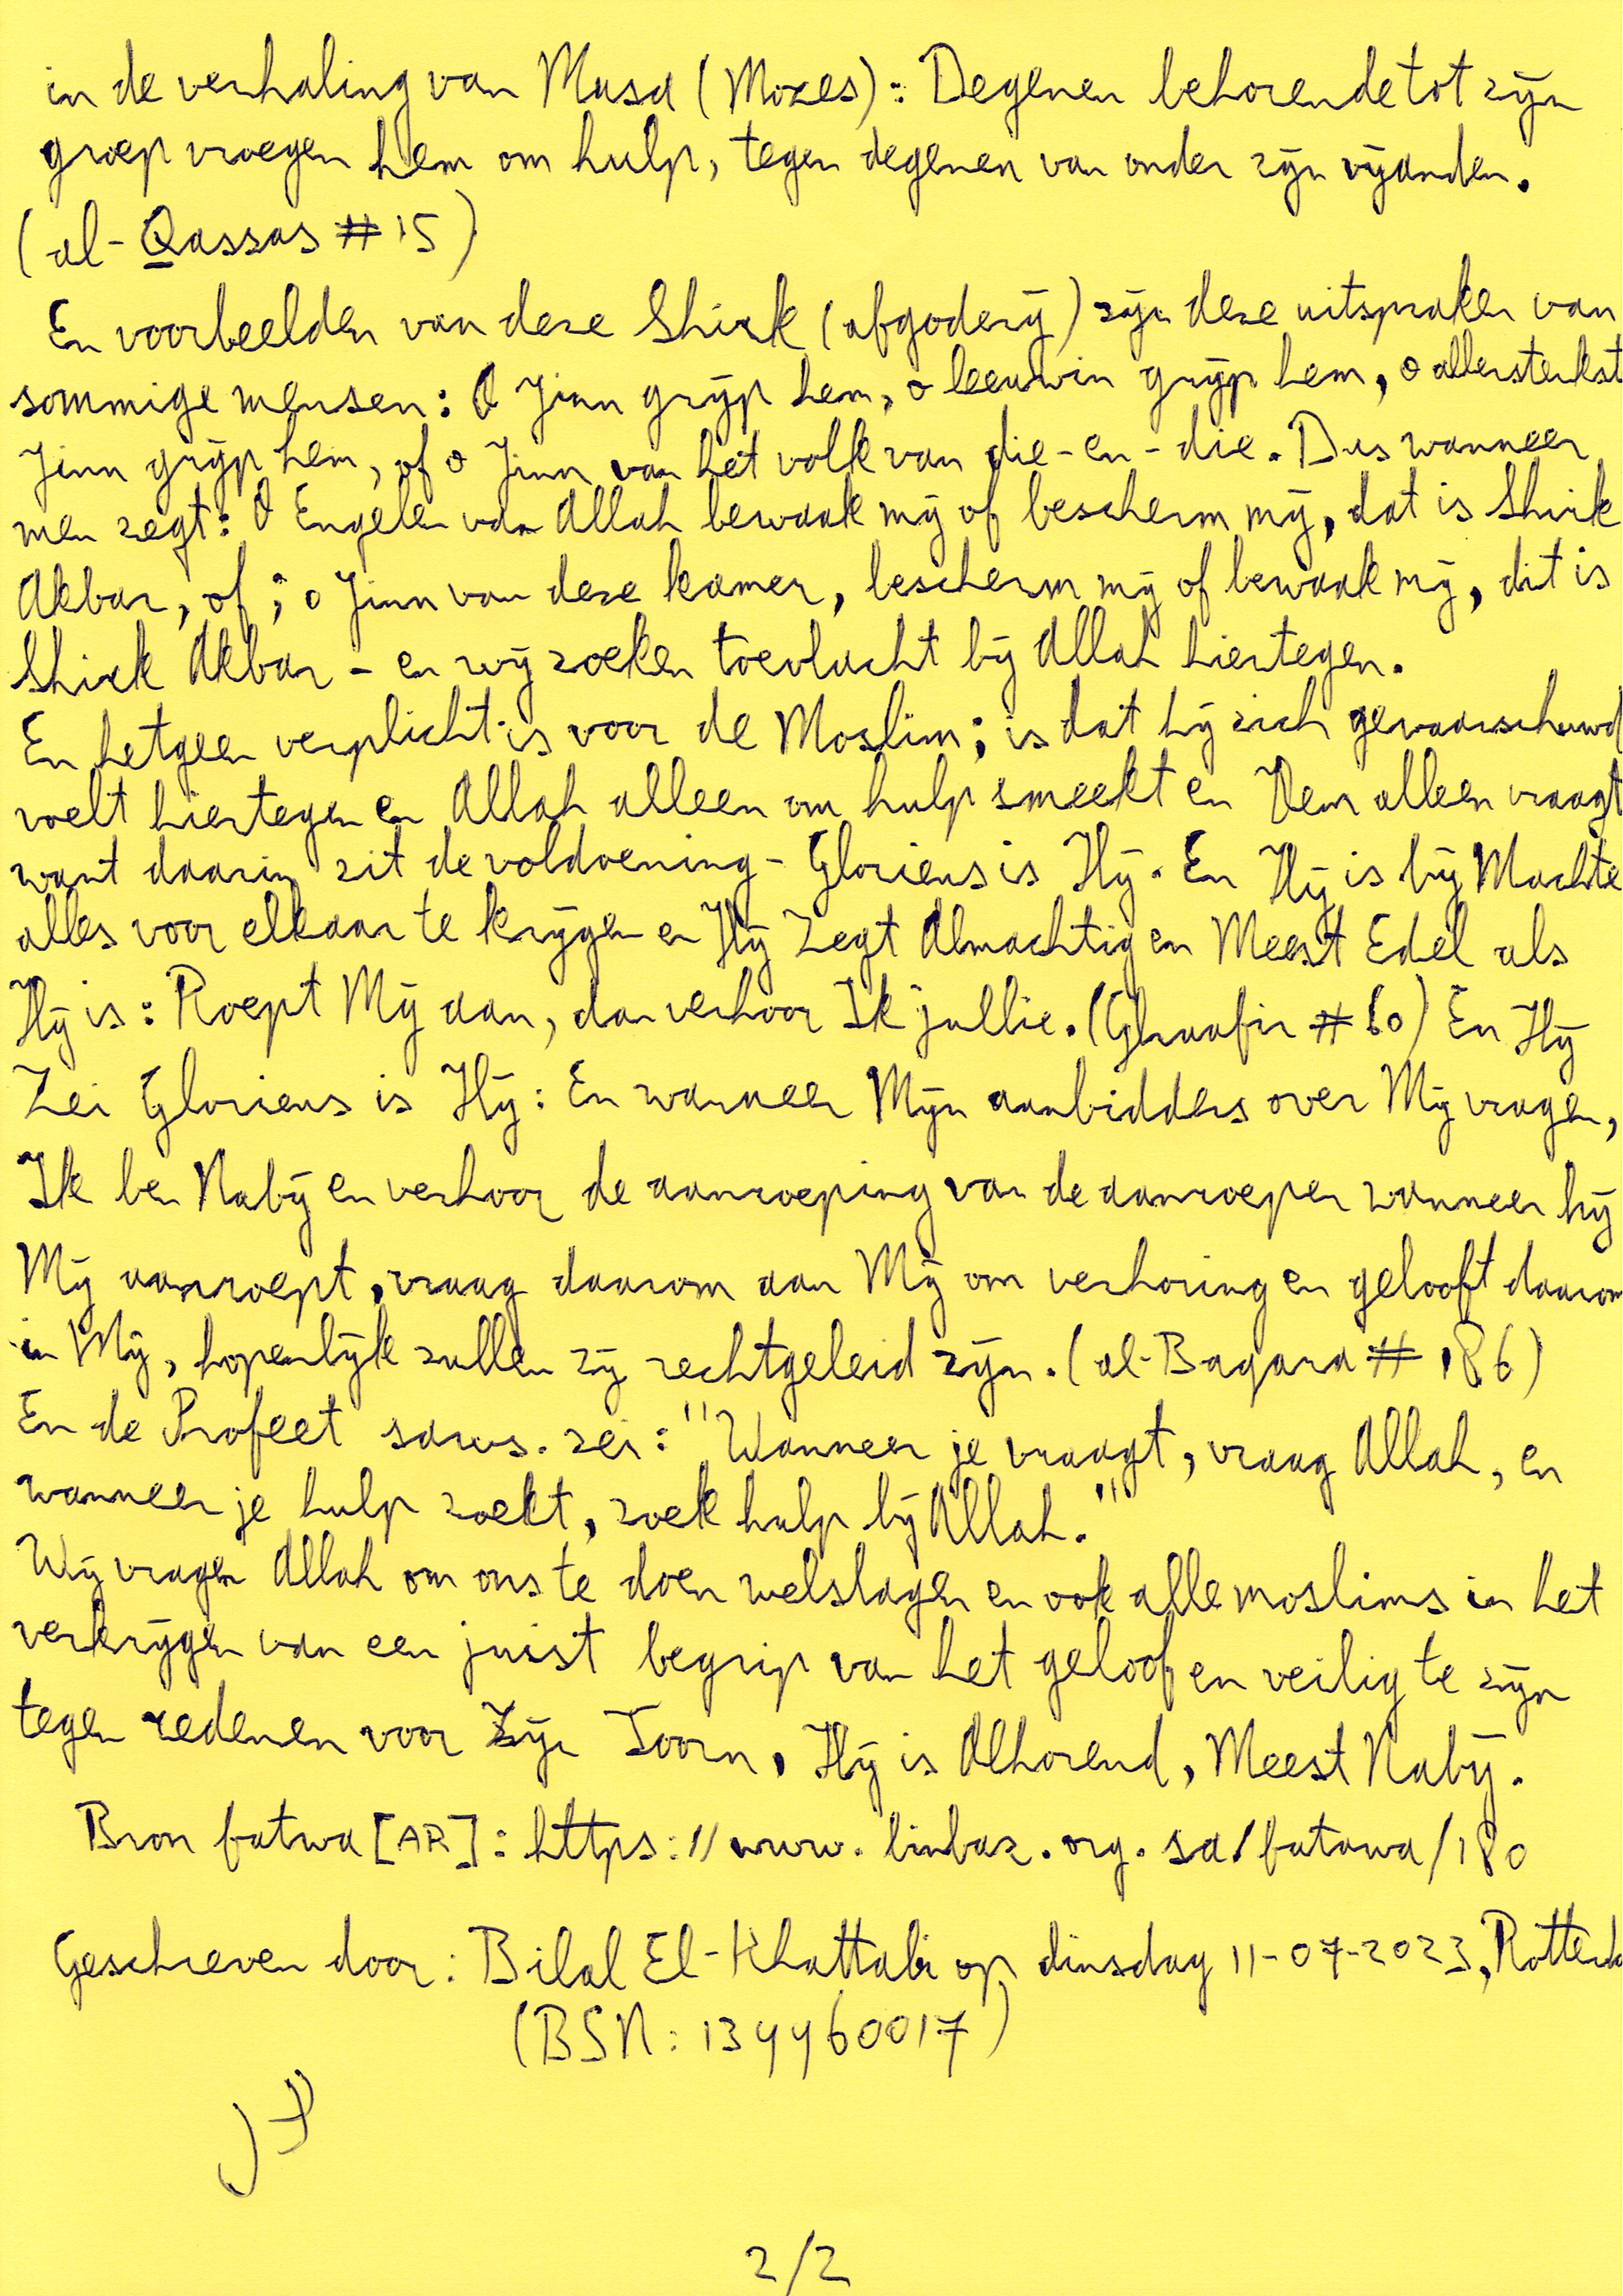 in de verhaling van Musa (Mozes): Degenen behorende tot zijn
groep vroegen hem om hulp, tegen degenen van onder zijn vijanden.
(al-Qassas # 15)
En voorbeelden van deze Shirk (afgoderij) zijn deze uitspraken van
sommige mensen: O Jinn grijp hem, o leeuwin grijp hem, o allersterkst
Jinn grijp hem, of o Jinn van het volk van die-en-die. Dus wanneer
men zegt: O Engelen van Allah bewaak mij of bescherm mij, dat is Shirk
Akbar, of; o Jinn van deze kamer, bescherm mij of bewaak mij, dit is
Shirk Akbar - en wij zoeken toevlucht bij Allah hiertegen.
En hetgeen verplicht is voor de Moslim; is dat hij zich gewaarschuwd
voelt hiertegen en Allah alleen om hulp smeekt en Hem alleen vraagt
want daarin zit de voldoening - Glorieus is Hij. En Hij is bij Machte
alles voor elkaar te krijgen en Hij Zegt Almachtig en Meest Edel als
Hij is: Roept Mij aan, dan verhoor Ik jullie. (Ghaafir # 60) En Hij
Zei Glorieus is Hij: En wanneer Mijn aanbidders over Mij vragen,
Ik ben Nabij en verhoor de aanroeping van de aanroeper wanneer hij
Mij aanroept, vraag daarom aan Mij om verhoring en gelooft daarom
in Mij, hopenlijk zullen zij rechtgeleid zijn. (al-Baqara # 186)
En de Profeet saws. zei: "Wanneer je vraagt, vraag Allah, en
wanneer je hulp zoekt, zoek hulp bij Allah."
Wij vragen Allah om ons te doen welslagen en ook alle moslims in het
verkrijgen van een juist begrip van het geloof en veilig te zijn
tegen redenen voor Zijn Toorn, Hij is Alhorend, Meest Nabij.
Bron fatwa [AR]: https://www.binbaz.org.sa/fatawa/180
Geschreven door: Bilal El-Khattabi op dinsdag 11-07-2023, Rotterda
(BSN: 134460017)
2/2